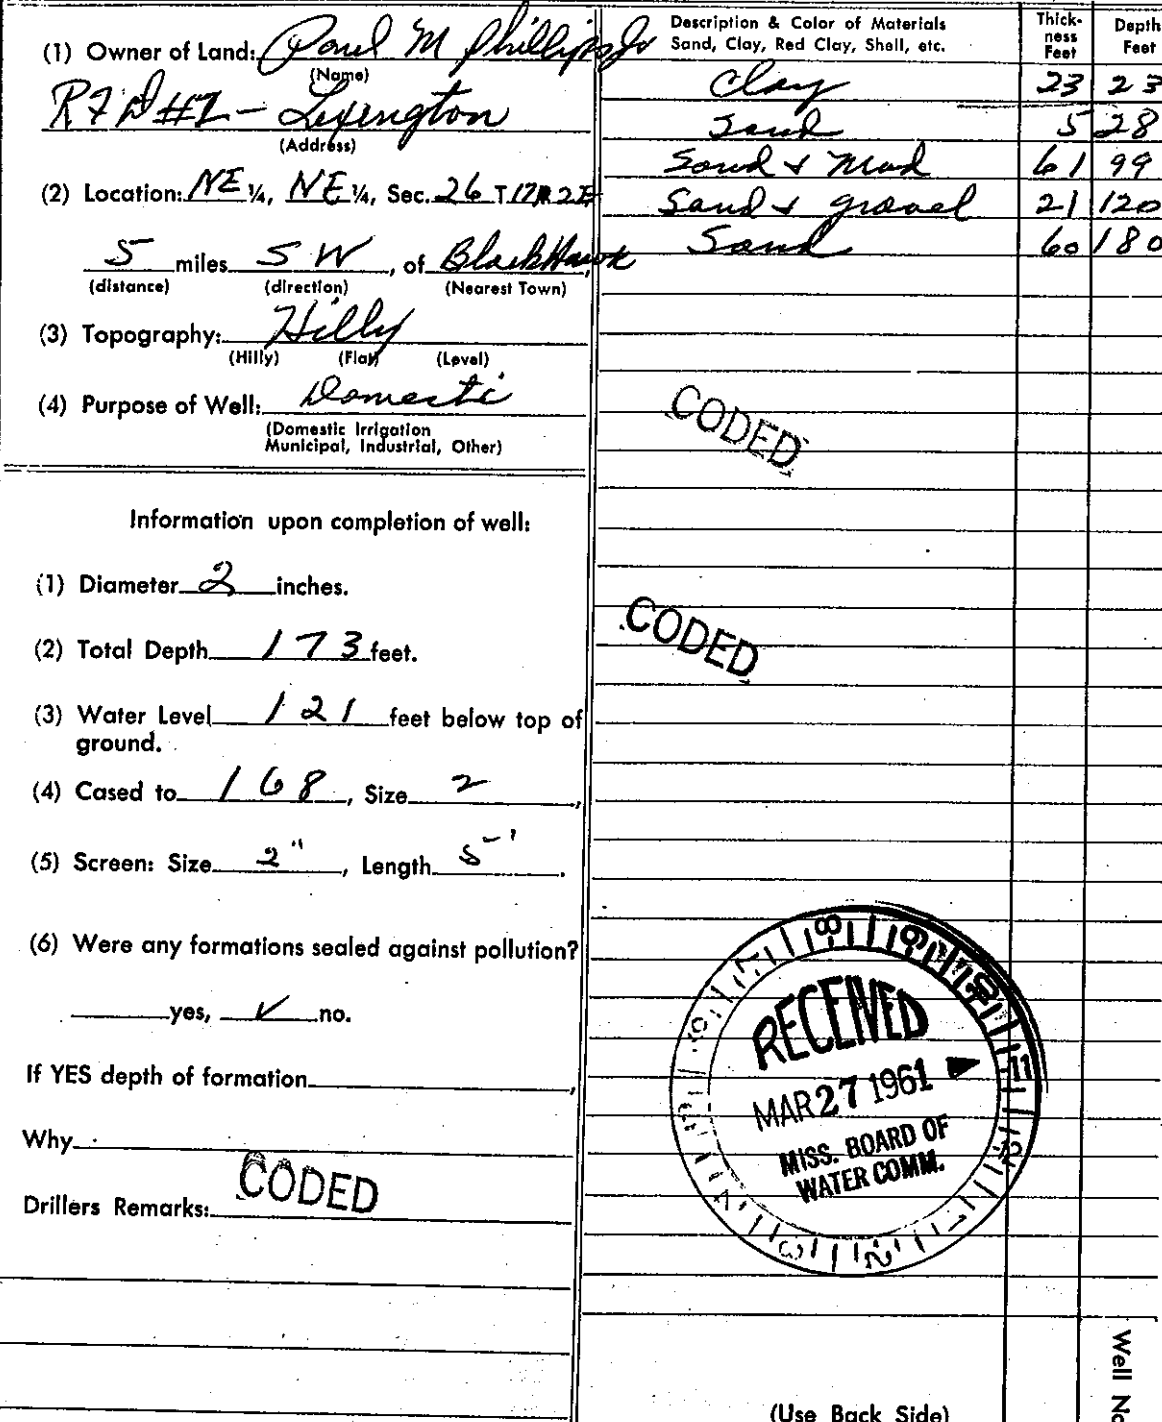 (1) Owner of Land: Paul M Phillips Jr
(Name)
RFD #2 - Lexington
(Address)
(2) Location: NE ¼, NE ¼, Sec. 26 T 17 R 2E
5 miles SW, of BlackHawk,
(distance) (direction) (Nearest Town)
(3) Topography: Hilly
(Hilly) (Flat) (Level)
(4) Purpose of Well: Domestic
(Domestic Irrigation
Municipal, Industrial, Other)
Information upon completion of well:
(1) Diameter 2 inches.
(2) Total Depth 173 feet.
(3) Water Level 121 feet below top of
ground.
(4) Cased to 168, Size 2,
(5) Screen: Size 2", Length 5'.
(6) Were any formations sealed against pollution?
yes, ✓ no.
If YES depth of formation,
Why
CODED
Drillers Remarks:
Description & Color of Materials
Sand, Clay, Red Clay, Shell, etc.
Thick-
ness
Feet
Depth
Feet
Clay 23 23
Sand 5 28
Sand & Mud 61 99
Sand & gravel 21 120
Sand 60 180
CODED
CODED
RECEIVED
MAR 27 1961
MISS. BOARD OF
WATER COMM.
8 9 10 11 12 1 2 3 4 5 6 7
(Use Back Side)
Well No